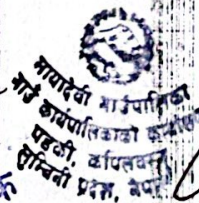 मायादेवी गाउँपालिका
गाउँ कार्यपालिकाको कार्यालय
पडरी, कपिलवस्तु
लुम्बिनी प्रदेश, नेपाल